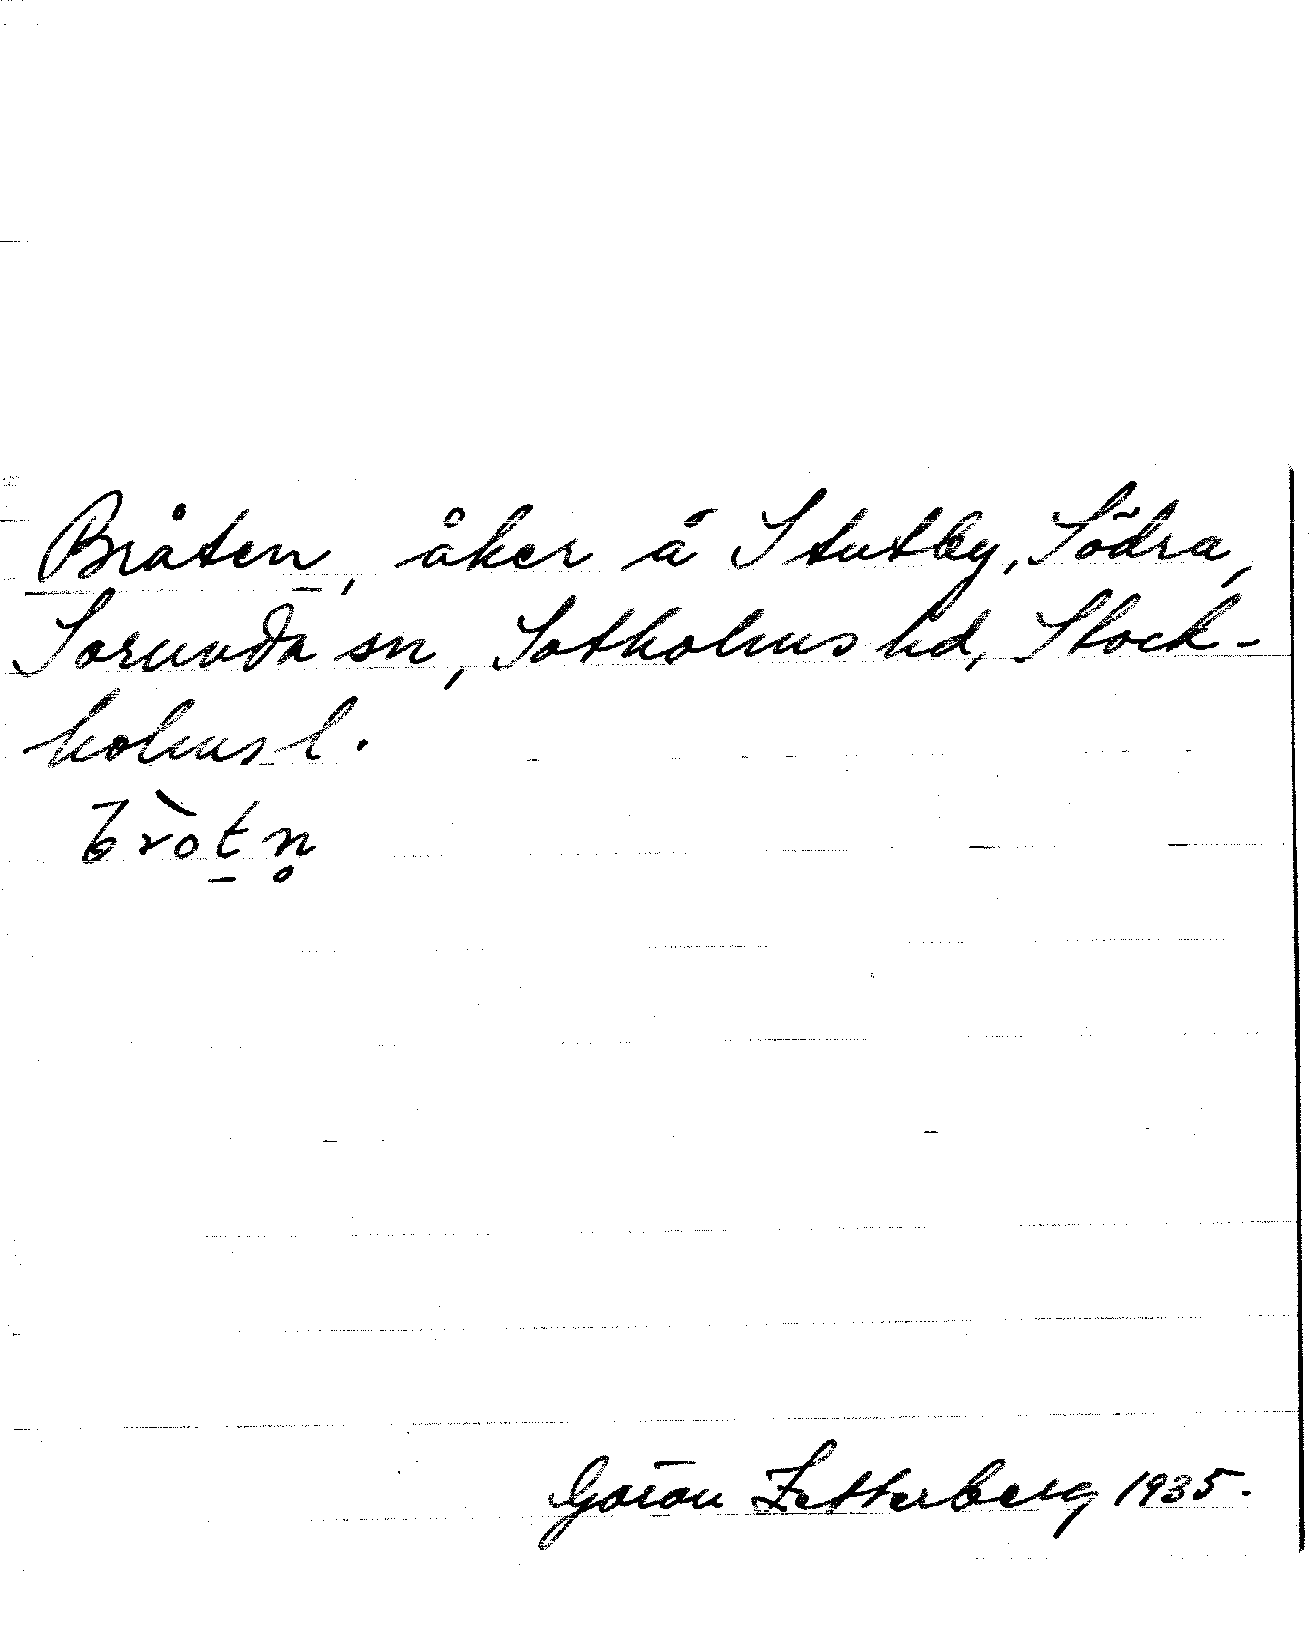 Bråten, åker å Stutby, Södra,
Sorunda sn, Sotholms hd, Stock-
holms l.
bròt̠n̥
Göran Zetterberg 1935.